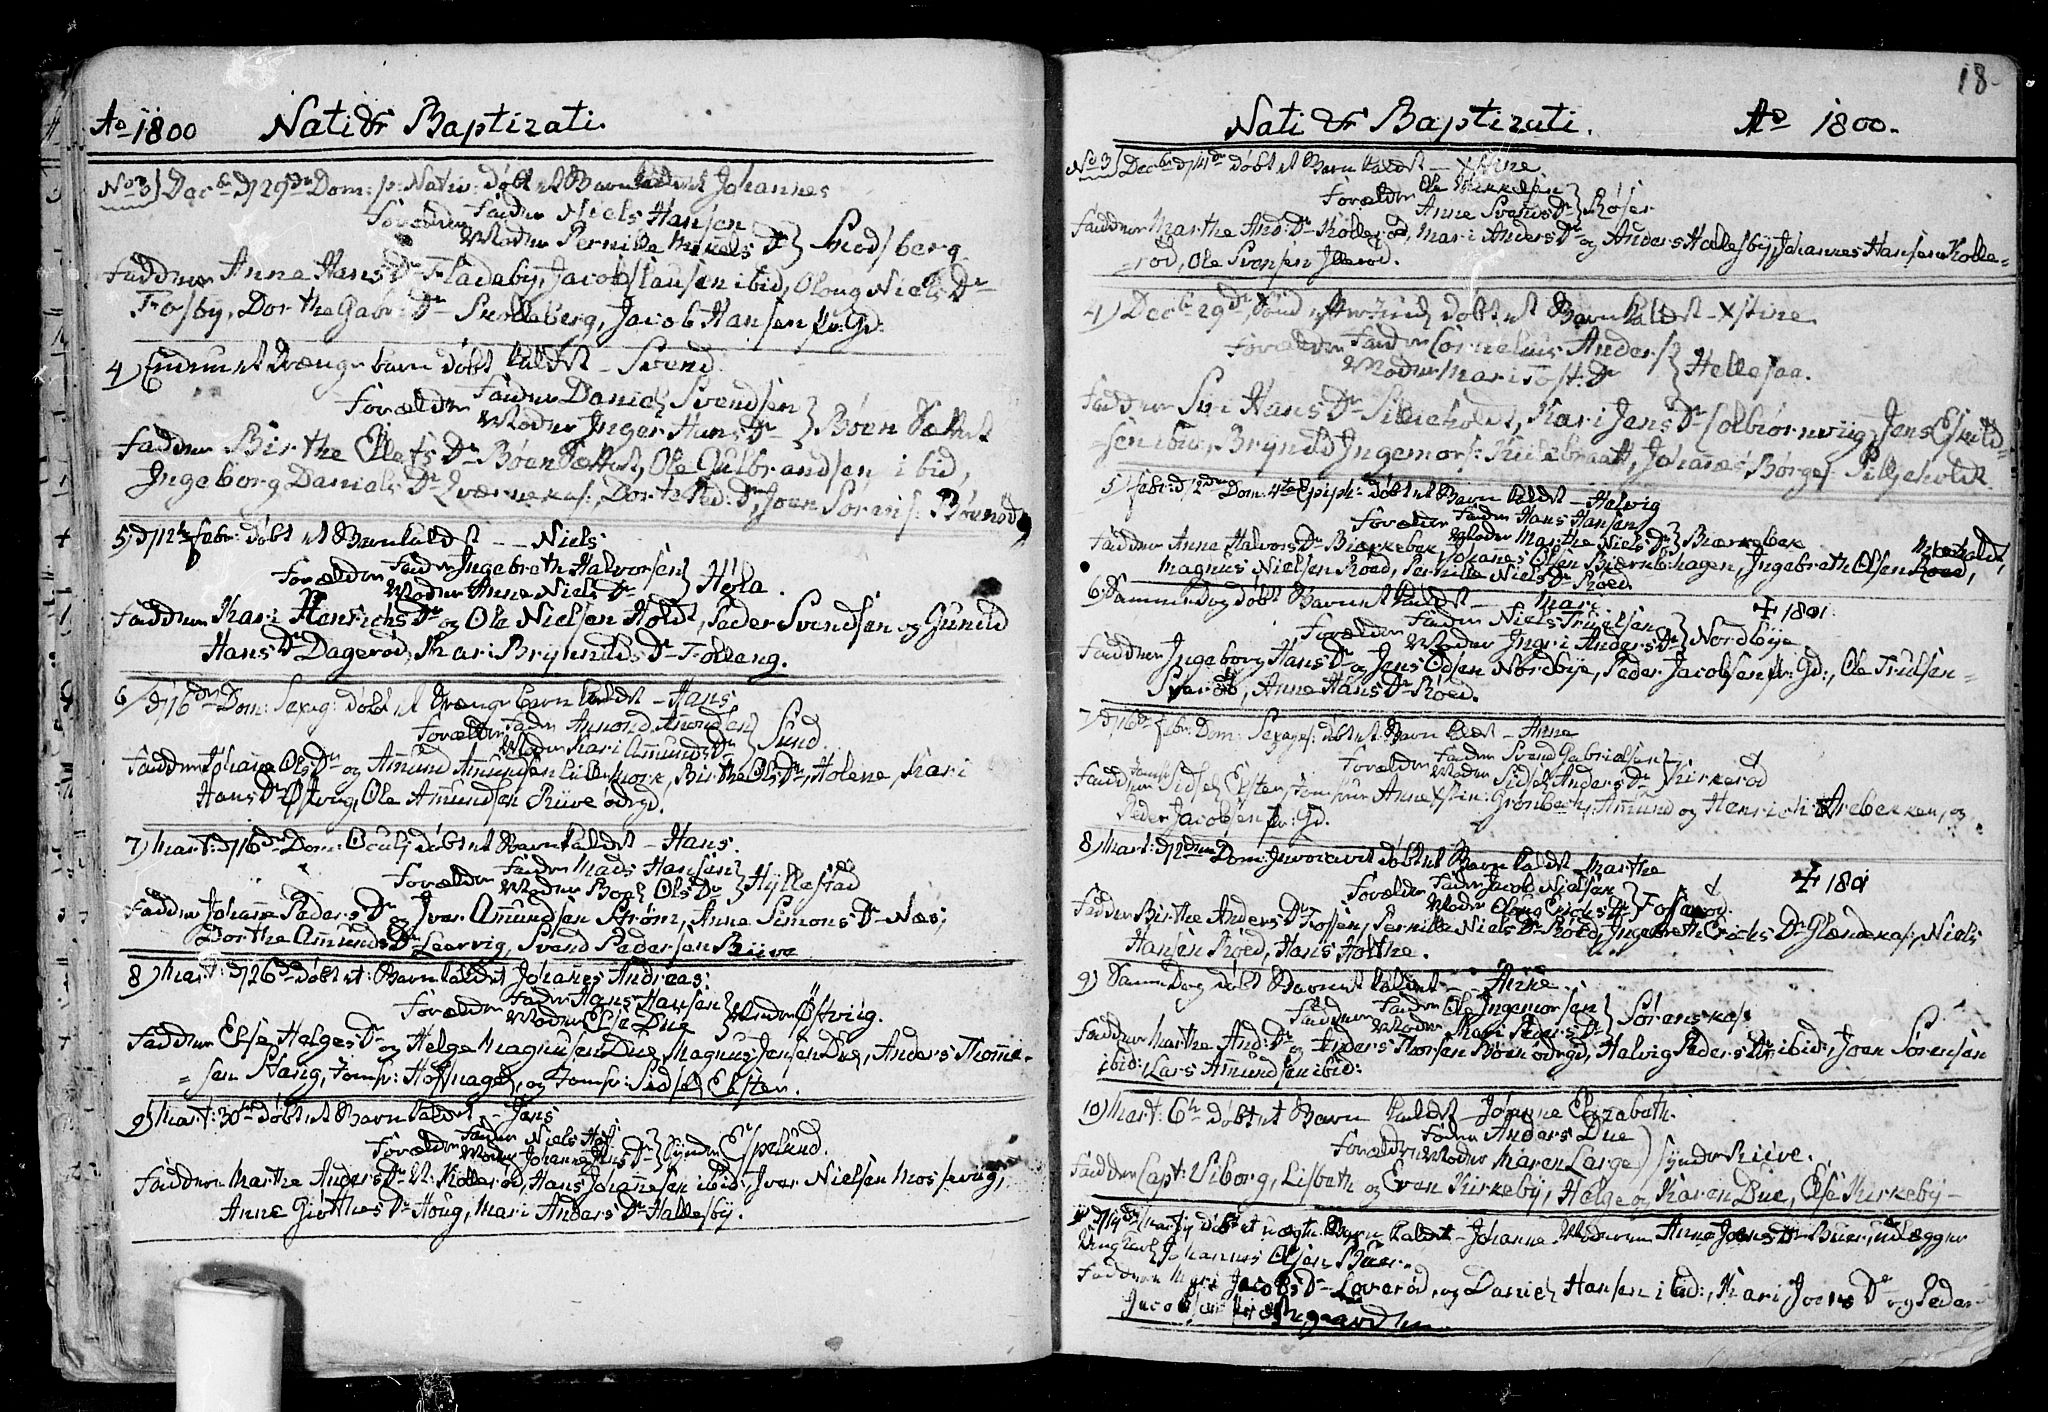 Ao 1800 Nati & Baptizati.
No 3) Decbr d 29de Dom: p: Nativ: døbt et Barn kaldet Johannes
Forældre Fader Niels Hansen
Moder Pernille Niels Dr } Snodsberg
Faddere Anne Hans Dr Fladeby, Jacob Clausen ibid, Oloug Niels Dr
Fosby, Dorthe Gabr: Dr Skolleberg, Jacob Hansen pr: Gd:
4) Eodem et Drænge barn døbt kaldet – Svend
Forældre Fader Daniel Svendsen
Moder Inger Hans Dr } Bøen Sættet
Faddere Birthe Ellefs Dr Bøen Sættet, Ole Gulbrandsen ibid,
Ingeborg Daniels Dr Qværnekas:, Dorte And: Dr, Joen Sørens:
5) d 12te Febr: døbt et Barn kaldet – Niels
Forældre Fader Ingebreth Halvorsen
Moder Anne Niels Dr } Hola.
Faddere Kari Henrichs Dr og Ole Nielsen Holt, Peder Svendsen og Gunild
Hans Dr Dagerød, Mari Brynnilds Dr Follang.
6) d 16de Dom: Sexag: døbt et Drænge Barn kaldet – Hans
Forældre Fader Amond Amonds
Moder Kari Amunds Dr } Sund.
Faddere Johane Ols Dr og Amund Amundsen Lille, Birthe Ols Dr, Holene, Kari
Hans Dr Østvig, Ole Amundsen Riive ødegd.
7) Mart: d 16de Dom: Oculj døbt et Barn kaldet – Hans.
Forældre Fader Mads Hansen
Moder Bogl Ols Dr } Hyllestad
Faddere Johane Peders Dr og Iver Amundsen Strøm, Anne Simons Dr Næs,
Dorthe Amunds Dr Leervig, Svend Pedersen Riive
8) Mart: d 26de døbt et Barn kaldet Johanes Andreas:
Forældre Fader Hans Hansen
Moder Else Due } Østviig.
Faddere Else Helges Dr og Helge Magnusen Due, Magnus Jensen Due, Anders Tho
sen Stang, Jomfr: Hofnagel, og Jomfr: Sidsel Elster.
9) Mart: 30te døbt et Barn kaldet – Jens
Forældre Fader Niels
Moder Johanne Dr } Synder Espelund.
Faddere Marthe Anders Dr N: Kollerød, Hans Johannesen ibid:, Iver Nielsen Mossevig,
Anne Giøthes Dr Houg, Mari Anders Dr Hallesby.
18
Nati & Baptizati. Ao 1800.
No 3) Decbr d 11de døbt et Barn kaldet – Xstine
Forældre Ole Mikkelsen
Anne Svens Dr } Røser
Faddere Marthe And: Dr Kollerød, Mari Anders Dr og Anders Hallesby, Johannes Hansen Kolle=
=rød, Ole Svensen Illerød.
4) Decbr 29de, døbt et Barn kaldet – Xstine
Forældre Fader Cornelius Anders
Moder Mari Tost: Dr } Hellesaa.
Faddere Siri Hans Dr Sillieholt, Kari Jens Dr Colbiørnviig, Jens Eskild=
=sen ibid, Bryndild Ingemors: Kulebraatt, Johanes Børges: Silljeholdt
5) Febr: d 2de Dom: 4ta Epiph: døbt et Barn kaldet – Halvig
Forældre Fader Hans Hansen
Moder Marthe Niels Dr } Biærkebek
Faddere Anne Halvors Dr Biærkebek, Johanes Olsen Biørnehagen, Ingebreth Olsen Roed,
Magnus Nielsen Roed, Pernille Niels Dr Roed.
6) Samme Dag døbt Barnet kaldet – Mari + 1801
Forældre Fader Niels Truelsen
Moder Ingri Anders Dr } Nordbøye
Faddere Ingeborg Hans Dr og Jens Olsen Nordbye, Peder Jacobsen pr: Gd:, Ole Trulsen =
Sverød, Anne Hans Dr Roed.
7) d 16de Febr: Dom: Sexages: døbt et Barn kaldt – Anne
Forældre Fader Svend Gabrielsen
Moder Sidsel Anders Dr } Kirkerød
Faddere Jomfr Sidsel Elster, Jomfrue Anne Xstin: Grønbech, Amund og Henrich Arebekken, og
Peder Jacobsen pr: Gd.
8) Mart: d 2den Dom: Invocavit døbt et Barn kaldet Marthe
Forældre Fader Jacob Nielsen + 1801
Moder Oloug Erichs Dr } Foserød.
Faddere Birthe Anders Dr Fosen, Pernille Niels Dr Roed, Ingebreth Erichs Dr Glændekas:, Niels
Hansen Roed, Hans Holthe.
9) Samme Dag døbt Barnet kaldet – Anne.
Faddere Fader Ole Ingemorsen
Moder Mari Peders Dr } Sørenskas:
Faddere Marthe And: Dr og Anders Thorsen Bøen ødegd, Halvig Peders Dr ibid:, Joen Sorensen
ibid:, Lars Amundsen ibid:
10) Mart: 6te døbt et Barn kaldet – Johanne Elizabeth.
Forældre Fader Anders Due
Moder Maren Large } Synder Riive.
Faddere Capt: Viborg, Lisbeth og Even Kirkeby, Helge og Karen Due, Else Kirkeby –
11) d 14de Martij døbt et uægte Barn kaldet – Johanne. Moderen Anne Joens Dr Buer, udlægger
Ungkarl Johannes Olsen Buer.
Faddere Mari Jacobs Dr Loverød, og Daniel Hansen ibid:, Kari Joens Dr og Peder
Jacobsen Præstegaarden.